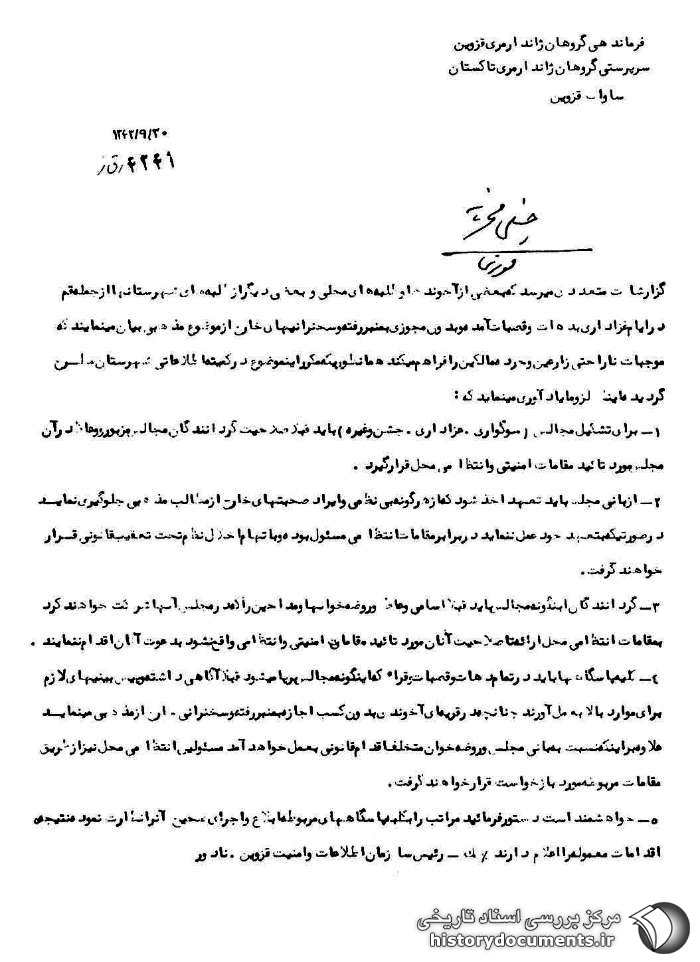 فرماندهی گروهان ژاندارمری قزوین
سرپرستی گروهان ژاندارمری تاکستان
ساواک قزوین
۱۳۴۲/۹/۲۰
۴۲۴۱ ق ز
خیلی محرمانه
فوری
گزارشات متعددی میرسد که بعضی از آخوندها و طلبه‌های محلی و بعضی دیگر از طلبه‌های شهرستانها از جمله قم
در ایام عزاداری بدهات و قصبات آمده و بدون مجوزی بمنبر رفته و سخنرانیهای خارج از موضوع مذهبی بیان مینمایند که
موجبات ناراحتی زارعین و خرده مالکین را فراهم میکند همانطوریکه مکرر این موضوع در کمیته اطلاعاتی شهرستان مطرح
گردیده علیهذا لزوما یادآوری مینماید که :
۱ـ برای تشکیل مجالس ( سوگواری . عزاداری . جشن و غیره ) باید قبلا صلاحیت گردانندگان مجالس مزبور و وعاظ در آن
مجلس مورد تائید مقامات امنیتی و انتظامی محل قرار گیرد .
۲ـ از بانی مجلس باید تعهد اخذ شود که از هرگونه بی نظمی و ایراد صحبتهای خارج از مطالب مذهبی جلوگیری نماید
در صورتیکه بتعهد خود عمل ننماید در برابر مقامات انتظامی مسئول بوده و باتهام اخلال نظم تحت تعقیب قانونی قرار
خواهند گرفت .
۳ـ گردانندگان اینگونه مجالس باید قبلا اسامی وعاظ و روضه خوانها و مداحین را که در مجلس آنها شرکت خواهند کرد
بمقامات انتظامی محل ارائه تا صلاحیت آنان مورد تائید مقامات امنیتی و انتظامی واقع نشود بدعوت آنان اقدام ننمایند .
۴ـ کلیه پاسگاهها باید در تمام دهات و قصبات و قراء که اینگونه مجالس برپا میشود قبلا آگاهی داشته و پیش بینیهای لازم
برای موارد بالا به عمل آورند چنانچه در قریه‌ای آخوندی بدون کسب اجازه بمنبر رفته و سخنرانی خارج از مذهبی مینماید
علاوه بر اینکه نسبت به بانی مجلس و روضه خوان متخلف اقدام قانونی بعمل خواهد آمد مسئولین انتظامی محل نیز از طریق
مقامات مربوطه مورد بازخواست قرار خواهند گرفت .
۵ـ خواهشمند است دستور فرمائید مراتب را بکلیه پاسگاههای مربوطه ابلاغ و اجرای صحیح آنرا نظارت نموده نتیجه
اقدامات معموله را اعلام دارند ـ رئیس سازمان اطلاعات و امنیت قزوین . نادور
مرکز بررسی اسناد تاریخی
historydocuments.ir